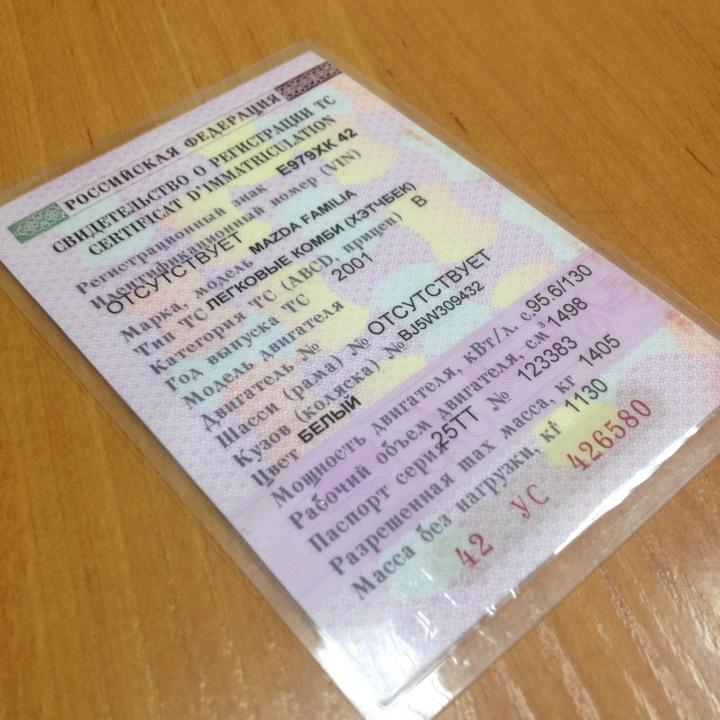 РОССИЙСКАЯ ФЕДЕРАЦИЯ
СВИДЕТЕЛЬСТВО О РЕГИСТРАЦИИ ТС
CERTIFICAT D'IMMATRICULATION
Регистрационный знак Е979ХК 42
Идентификационный номер (VIN)
ОТСУТСТВУЕТ
Марка, модель MAZDA FAMILIA
Тип ТС ЛЕГКОВЫЕ КОМБИ (ХЭТЧБЕК)
Категория ТС (ABCD, прицеп) B
Год выпуска ТС 2001
Модель двигателя
Двигатель №
Шасси (рама) № ОТСУТСТВУЕТ
Кузов (коляска) № BJ5W309432
Цвет БЕЛЫЙ
Мощность двигателя, кВт/л. с. 95.6/130
Рабочий объем двигателя, см³ 1498
Паспорт серия 25ТТ № 123383
Разрешенная max масса, кг 1405
Масса без нагрузки, кг 1130
42 УС 426580